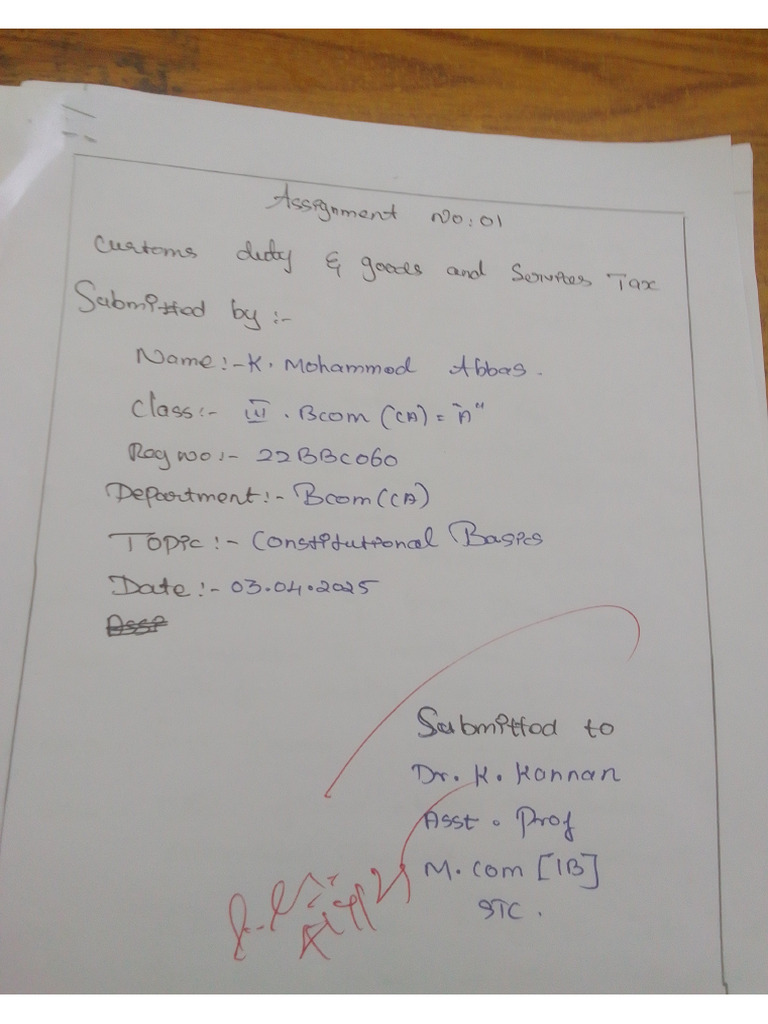 Assignment No:01
Customs duty & goods and Services Tax
Submitted by :-
Name:- K. Mohammod Abbas.
Class:- III . Bcom (CA) = "A"
Reg no :- 22BBC060
Department:- Bcom (CA)
Topic :- Constitutional Basics
Date :- 03.04.2025
Submitted to
Dr. K. Kannan
Asst. Prof
M.com [IB]
STC.